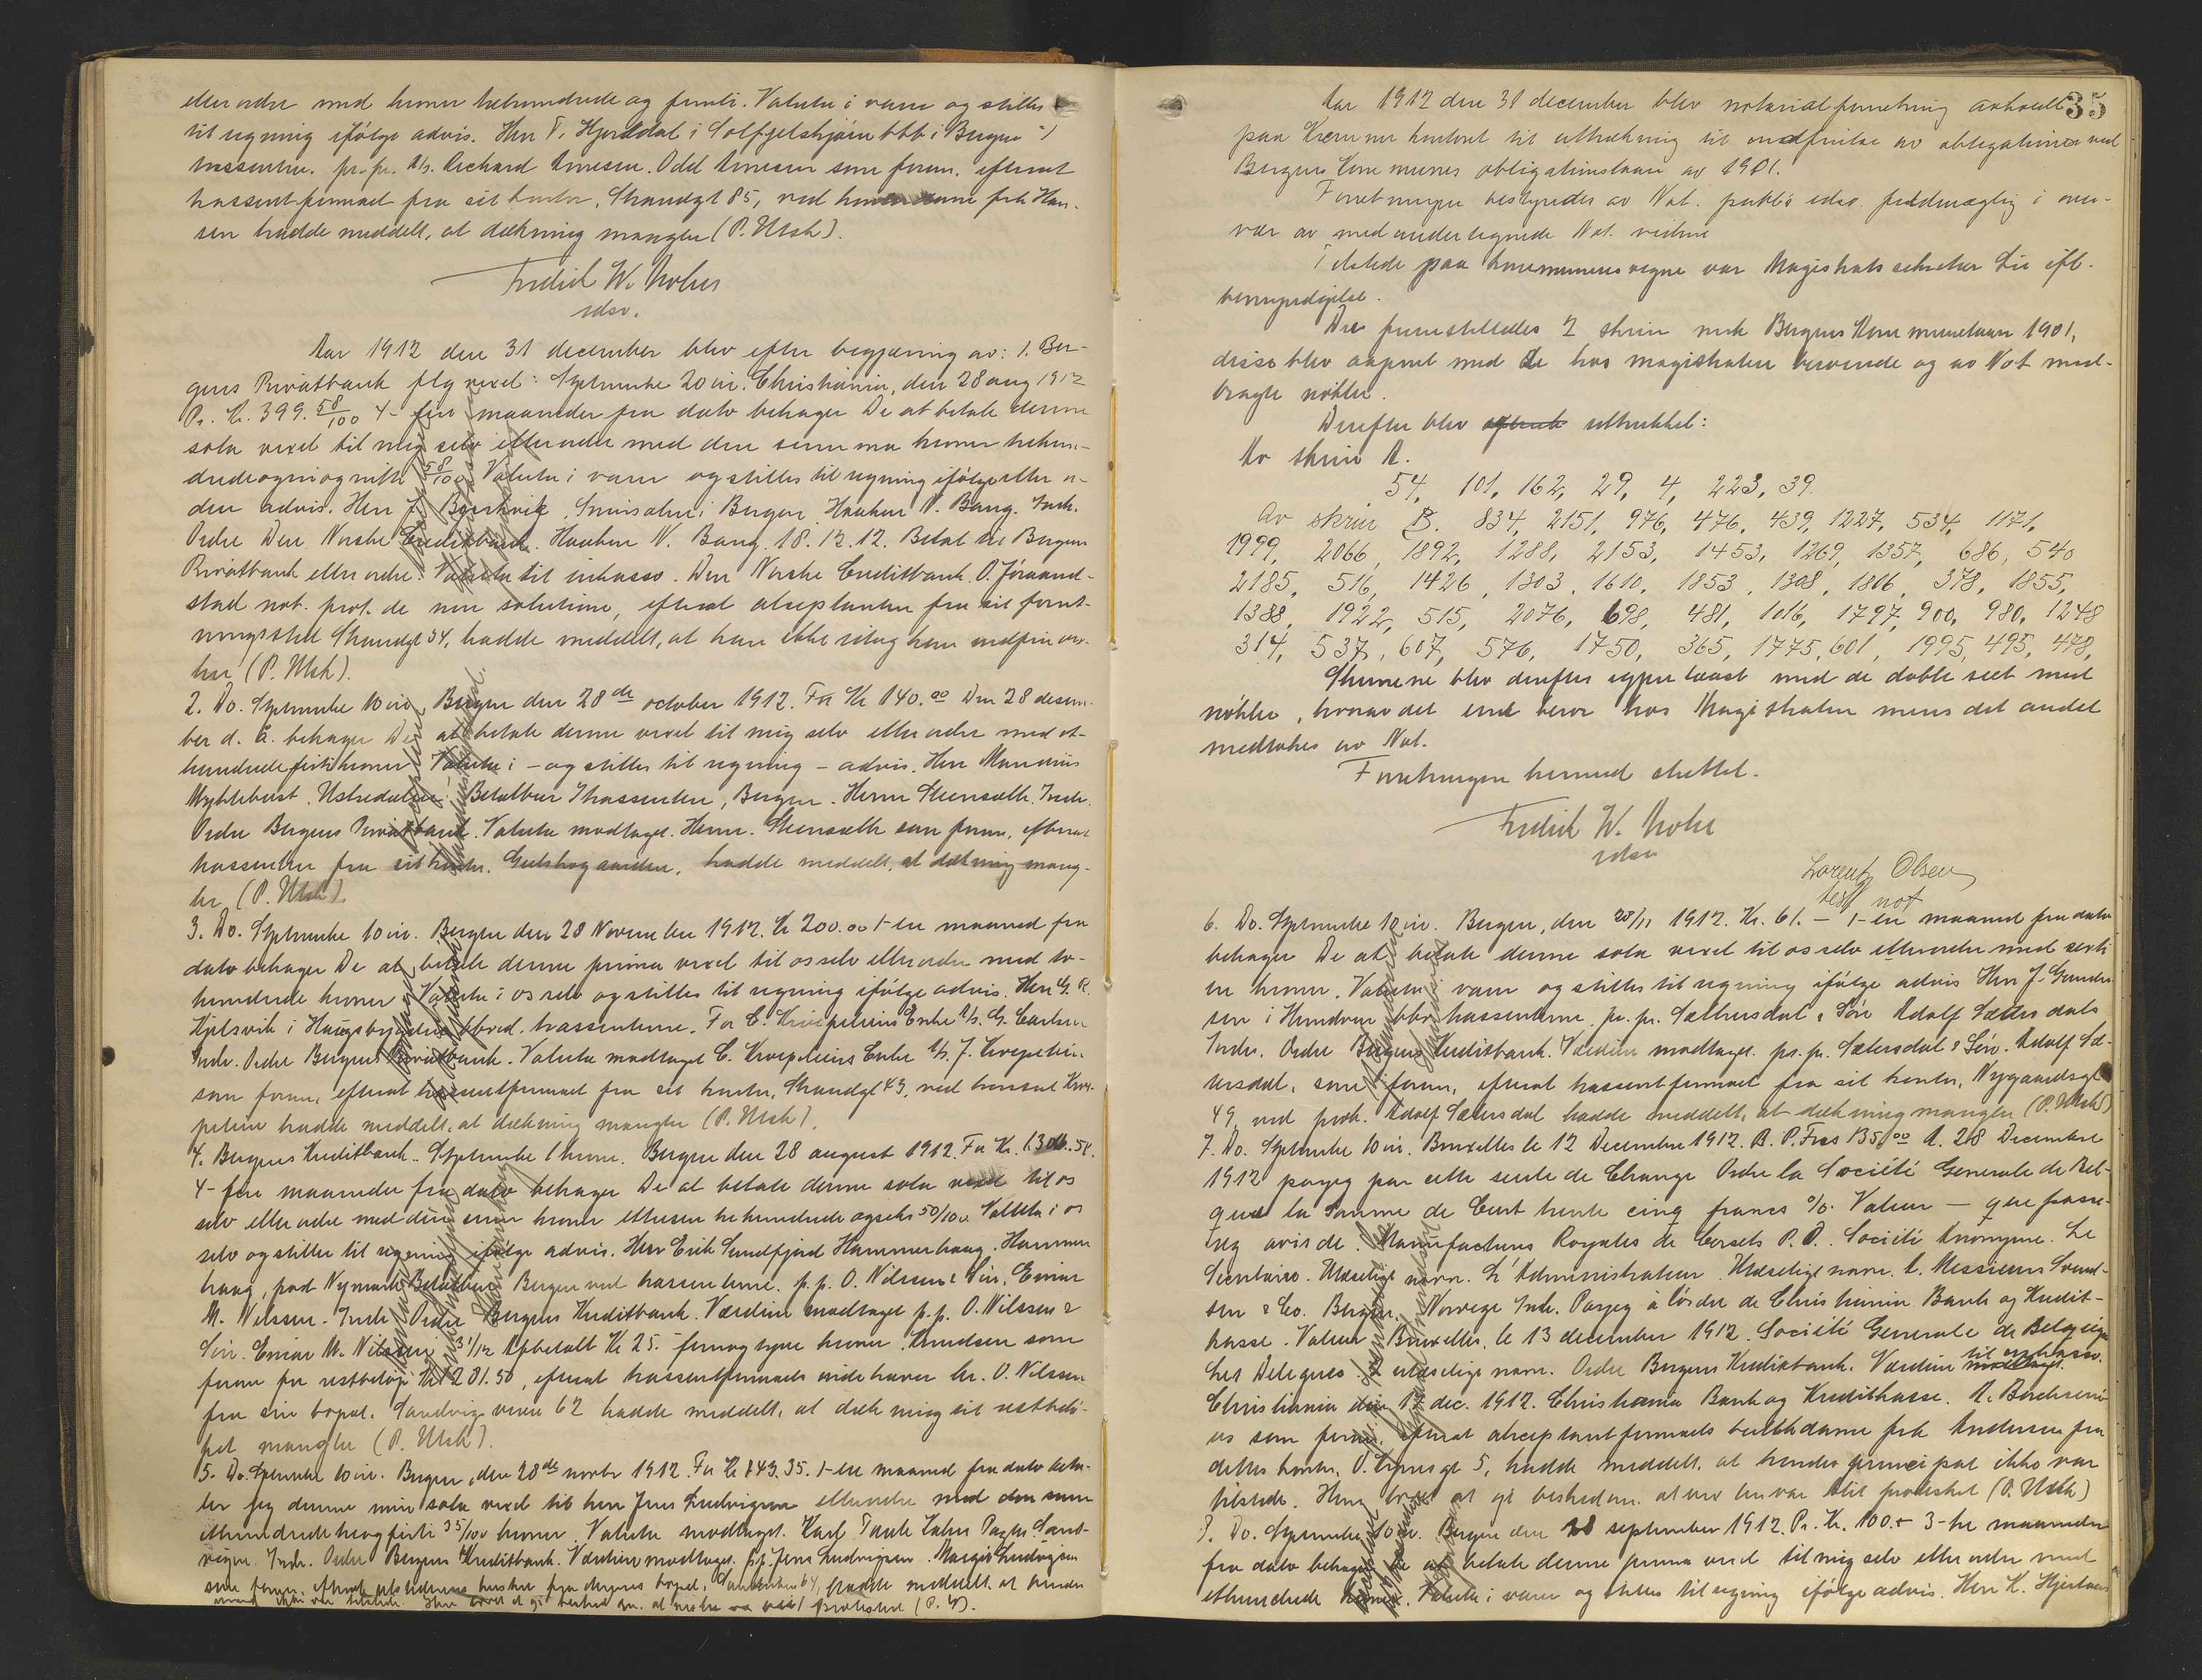 eller ordre med kroner tohundrede og femti. Valuta i varer og stilles
til regning ifölge advis. Herr T. Hjorddal i Solfjeldskjöen btb i Bergen
trassenten. pr. pr. A/s. Richard Arnesen. Odd Arnesen som foran. efterat
trassentfirmaet fra sit kontor, Strandgt 85, ved frk Han-
sen hadde meddelt, at dækning mangler (P. Utsk).
Fredrik W. Mohr
edsv.
Aar 1912 den 31 december blev efter begjæring av: 1. Ber-
gens Privatbank flg vexel: Stplmerke 20 öre. Christiania, den 28 aug 1912
Pr. Kr. 399. 58/100 4- fire maaneder fra dato behager De at betale denne
sola vexel til mig selv eller ordre med den summa kroner trehun-
dredeogniogniti 58/100 Valuta i varer og stilles til regning ifölge eller u-
den advis. Herr J. Bjerkvik, Snivsalen i Bergen. Haakon N. Bang. Indr.
Ordre Den Norske Creditbank. Haakon N. Bang. 18.12.12. Betal til Bergens
Privatbank eller ordre. Valuta til inkasso. Den Norske Creditbank. O. Jöraand-
stad not. prot. de non solutione, efterat akseptanten fra sit forret-
ningssted Strandgt 54, hadde meddelt, at han ikke idag kan indfri vex-
len (P. Utsk).
2. Do. Stplmerke 10 öre. Bergen den 28de october 1912. For Kr 140.00 Den 28 desem-
ber d. å. behager De at betale denne vexel til mig selv eller ordre med et-
hundredefirti kroner Valuta i - og stilles til regning - advis. Herr Mandius
Myklebust. Ustredalen. Betalbar Thrassenten, Bergen. Herm Steensæth. Indr.
Ordre Bergens Privatbank. Valuta modtaget. Herm. Steensæth som foran, efterat
trassenten fra sit kontor. Geelskogaarden, hadde meddelt, at dækning mang-
ler (P. Utsk).
3. Do. Stplmerke 10 öre. Bergen den 28 November 1912. Kr 200.00 1-en maaned fra
dato behager De at betale denne prima vexel til os selv eller ordre med to-
hundrede kroner Valuta i os selv og stilles til regning ifölge advis. Herr G. R.
Kjelsvik i Haugsbygden btbr ved trassenterne. For C. Kroepelins Enke A/s. G. Carlsen
Indr. Ordre Bergens Privatbank. Valuta modtaget C. Kroepelins Enke A/s. J. Kroepelin
som foran, efterat trassentfirmaet fra sit kontor, Strandgt 43, ved konsul Kroe-
pelin hadde meddelt, at dækning mangler (P. Utsk).
4. Bergens Kreditbank. Stplmerke 1 krone. Bergen den 28 august 1912. For Kr. 1306.50.
4- fire maaneder fra dato behager De at betale denne sola vexel til os
selv eller ordre med den sum kroner ettusen trehundrede ogseks 50/100 Valuta i os
selv og stilles til regning ifölge advis. Herr Erik Sundfjord Hammerhaug. Hammer-
haug, pad Nymark Betalbar Bergen ved trassenterne. p.p. O. Nilssen & Sön, Einar
M. Nilssen. Indr. Ordre Bergens Kreditbank. Værdien modtaget p.p. O. Nilssen &
Sön. Einar M. Nilssen 3/12 Afbetalt Kr 25.- femogtyve kroner. Knudsen som
foran for restbelöp Kr 1281.50, efterat trassentfirmaets indehaver hr. O. Nilssen
fra sin bopæl, Sandvigsveien 62 hadde meddelt, at dækning til restbelö-
pet mangler (P. Utsk).
5. Do. Stplmerke 10 öre. Bergen, den 28de novbr 1912. For Kr 143.35. 1-en maaned fra dato beta-
ler jeg denne min sola vexel til herr Jens Ludvigsen eller ordre med den sum
ethundrede treogfirti 35/100 kroner. Valuta modtaget. Karl
Indr. Ordre Bergens Kreditbank. Værdien modtaget. p.p. Jens Ludvigsen. Margit Ludvigsen
som foran, efterat utstederens hustru fra deres bopæl, 64, hadde meddelt, at hendes
mand ikke var tilstede. Hun lovet at gi besked om, at vexlen var blit protestert (P. U).
35
Aar 1912 den 31 december blev notarialforretning avholdt
paa Kæmnerkontoret til uttrækning til indfrielse av obligationer ved
Bergens Kommunes obligationslaan av 1901.
Forretningen bestyredes av Not. publ's edsv. fuldmægtig i over-
vær av medundertegnede Not. vidne
Tilstede paa kommunens vegne var Magistratssekretær Lie ifl.
bemyndigelse.
Der fremstilledes 2 skrin mrk Bergens Kommunelaan 1901,
disse blev aapnet med de hos magistraten beroende og av Not med-
bragte nökler.
Derefter blev uttrukket:
Av skrin A.
54, 101, 162, 29, 4, 223, 39.
Av skrin B. 834, 2151, 976, 476, 439, 1227, 534, 1171,
1999, 2066, 1892, 1288, 2153, 1453, 1269, 1357, 686, 540
2185, 516, 1426, 1303, 1610, 1853, 1308, 1806, 378, 1855,
1388, 1922, 515, 2076, 698, 481, 1016, 1797, 900, 980, 1248
314, 537, 607, 576, 1750, 365, 1775, 601, 1995, 495, 478,
Skrinene blev derefter igjen laast med de doble sæt med
nökler, hvorav det ene beror hos Magistraten mens det andet
medtokes av Not.
Forretningen hermed sluttet.
Fredrik W. Mohr
edsv
Lorentz Olsen
test not
6. Do. Stplmerke 10 öre. Bergen, den 28/11 1912. Kr. 61.- 1-en maaned fra dato
behager De at betale denne sola vexel til os selv eller ordre med sexti
en kroner. Valuta i varer og stilles til regning ifölge advis Herr J. Gunder-
sen i Hundven btbr trassenterne. pr. pr. Sætersdal & Sön Adolf Sætersdal
Indr. Ordre Bergens Kreditbank. Værdien modtaget. pr. pr. Sætersdal & Sön. Adolf Sæ-
tersdal, som foran, efterat trassentfirmaet fra sit kontor, Nygaardsgt
49, ved prok. Adolf Sætersdal hadde meddelt, at dækning mangler (P. Utsk)
7. Do. Stplmerke 10 öre. Bruxelles le 12 Decembre 1912. B. P. Frcs 135,00 A. 28 Decembre
1912 payez par cette seule de Change Ordre la Société Generale de Bel-
gique la Somme de Cent trente cinq francs % Valeur — que passe-
rez avis de. Manufactures Royales de Corsets P. D. Société Anonyme. Le
Secretaire. Ulæseligt navn. L'Administrateur. Ulæseligt navn. A. Messieurs Svend-
sen & Co. Bergen. Norvege Indr. Payez à l'ordre de Christiania Bank og Kredit-
kasse. Valeur. Bruxelles, le 13 december 1912. Société Generale de Belgique
Les Delegues. 2 ulæselige navn. Ordre Bergens Kreditbank. Værdien modtaget. til inkasso.
Christiania den 17 dec. 1912. Christiania Bank og Kreditkasse.
som foran, efterat akseptantfirmaets butikdame frk Andersen fra
dettes kontor, 5, hadde meddelt, at hendes principal ikke var
tilstede. Hun lovet at gi besked om, at vexlen var blit protestert (P. Utsk)
8. Do. Stplmerke 10 öre. Bergen den 28 september 1912. Pr. Kr. 100.- 3-tre maaneder
fra dato behager De at betale denne prima vexel til mig selv eller ordre med
ethundrede kroner. Valuta i varer og stilles til regning ifölge advis. Herr K. Hjertaas